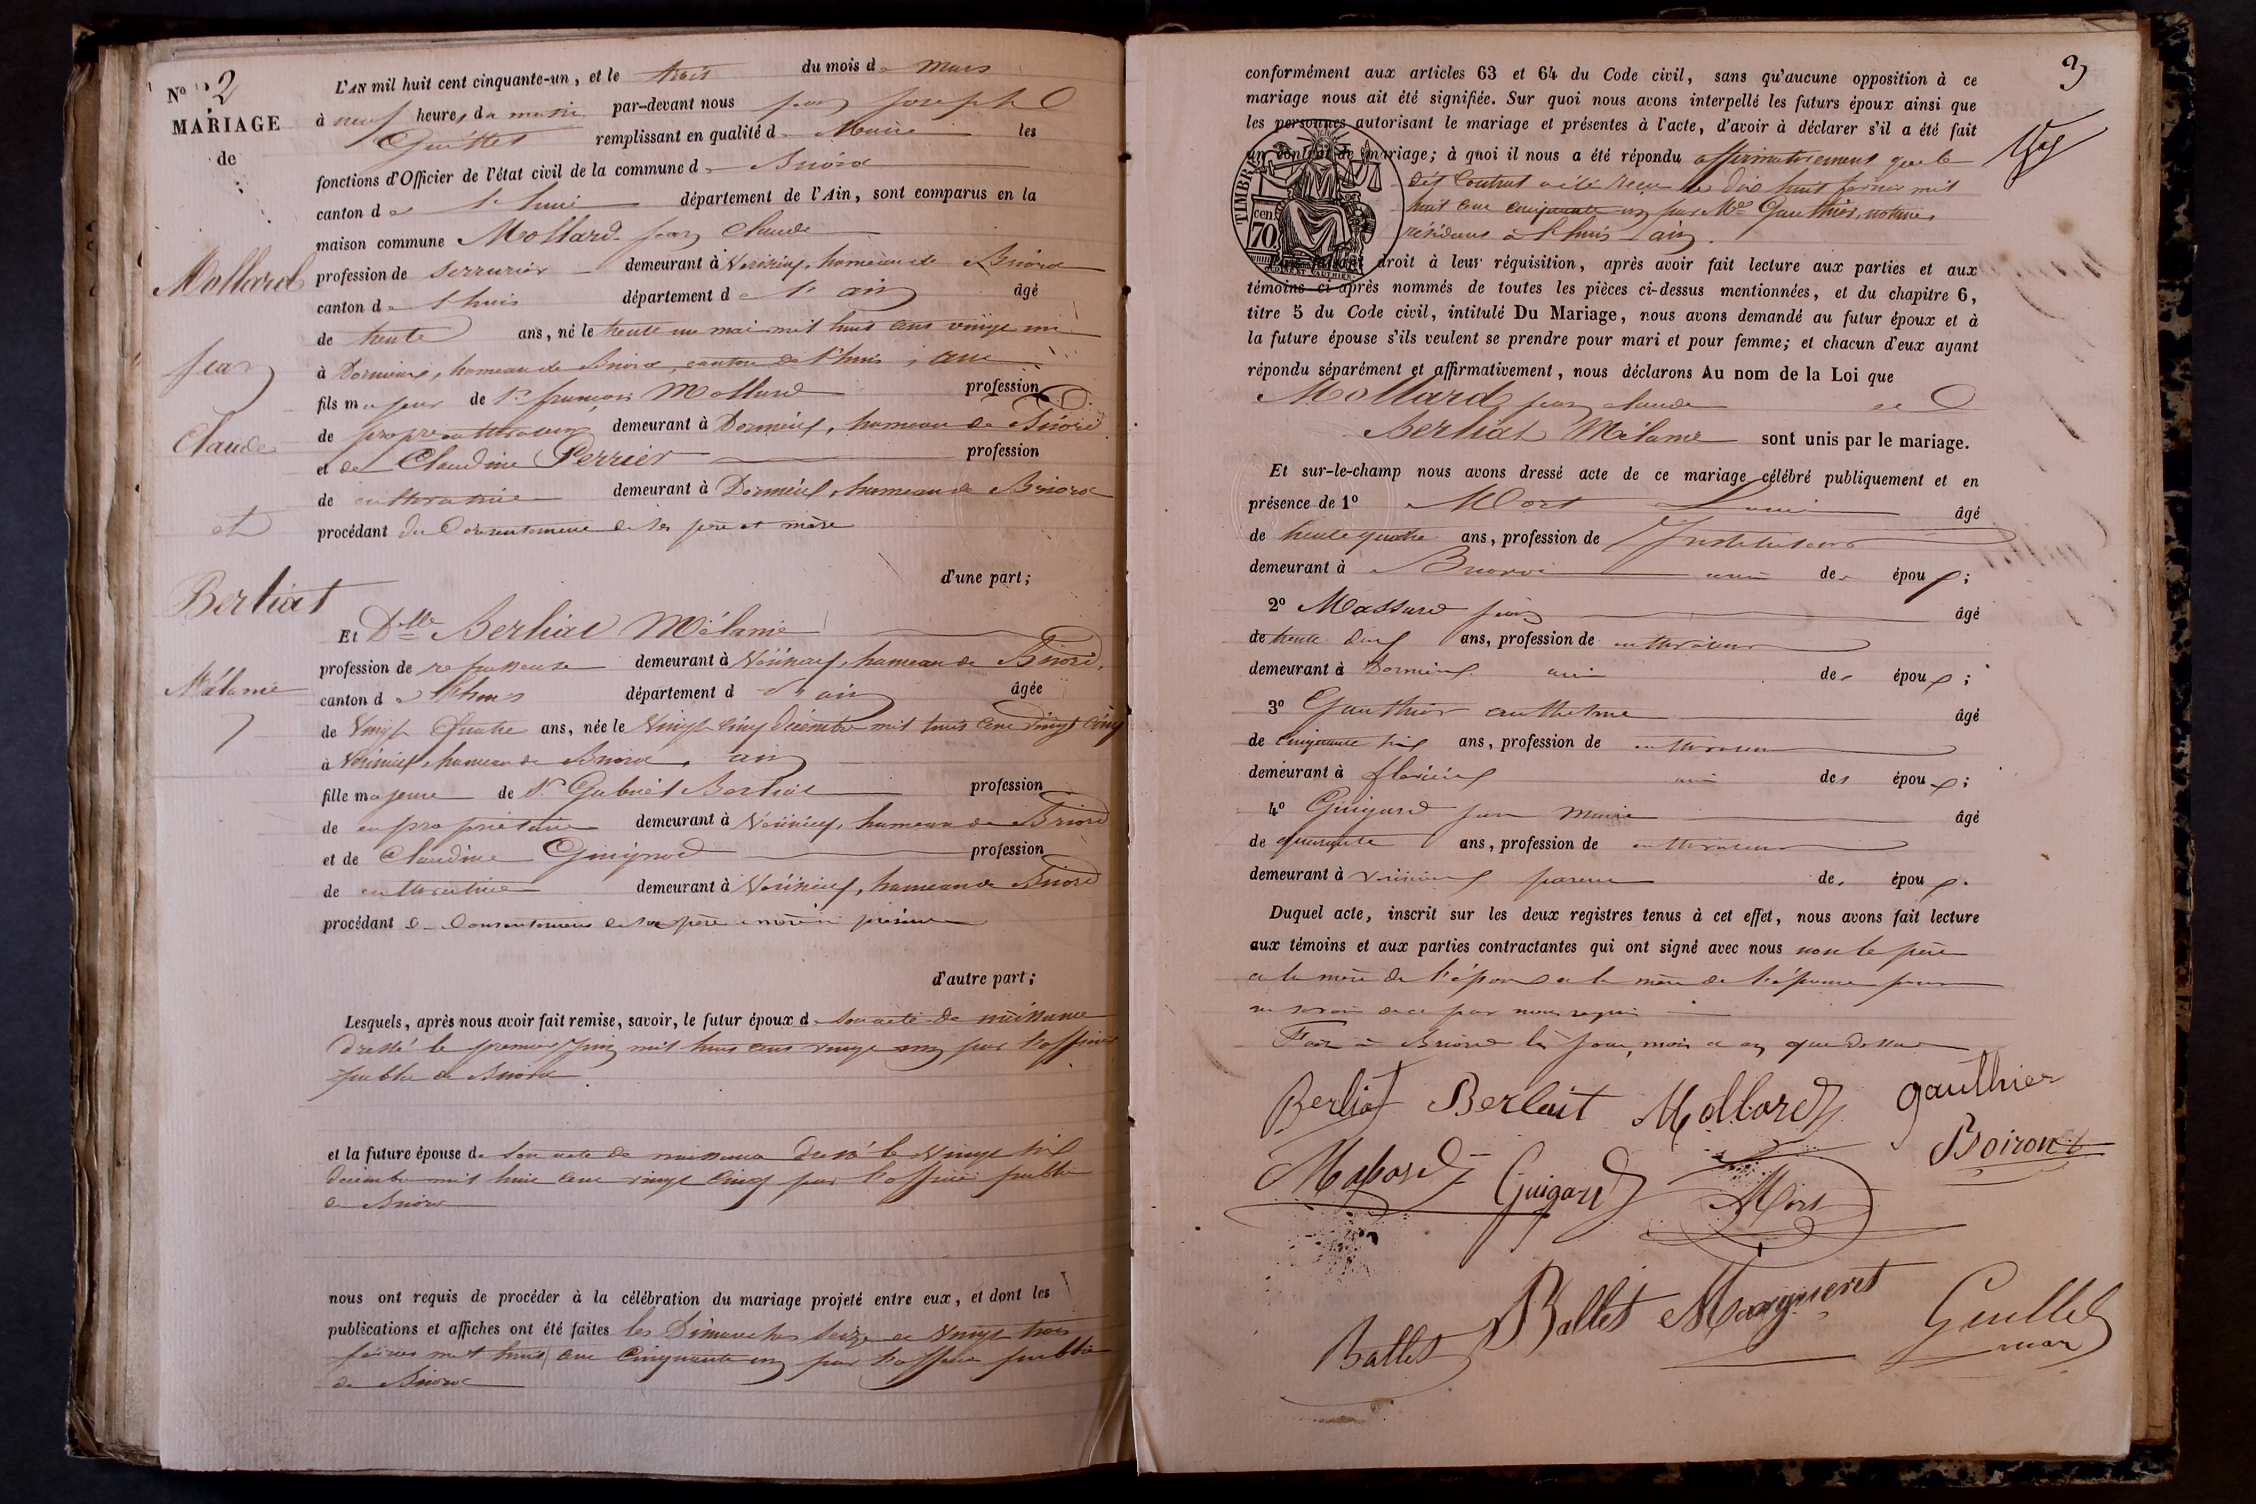 N° 2
MARIAGE
de
Mollard
jean
Claude
et
Berliat
Mélanie
L'AN mil huit cent cinquante-un, et le trois du mois de Mars
à neuf heures du matin par-devant nous jean joseph
Guillet remplissant en qualité de Maire les
fonctions d'Officier de l'état civil de la commune de Briord
canton de l'huis département de l'Ain, sont comparus en la
maison commune Mollard jean Claude
profession de serrurier demeurant à Vérizieu, hameau de Briord
canton de l'huis département de l'ain âgé
de trente ans, né le trente un mai mil huit cent vingt un
à Dornieux, hameau de Briord, canton de l'huis, ain
fils majeur de Sr françois Mollard profession
de propre cultivateur demeurant à Dornieux, hameau de Briord
et de Claudine Perrier profession
de cultivatrice demeurant à Dornieux, hameau de Briord
procédant du Consentement de ses père et mère
d'une part;
Et Dlle Berliat Mélanie
profession de repasseuse demeurant à Vérizieu, hameau de Briord,
canton de l'huis département de l'ain âgée
de Vingt Quatre ans, née le Vingt cinq Décembre mil huit cent vingt cinq
à Vérizieu, hameau de Briord, ain
fille majeure de Sr Gabriel Berliat profession
de propriétaire demeurant à Vérizieu, hameau de Briord
et de Claudine profession
de cultivatrice demeurant à Vérizieu, hameau de Briord
procédant Consentement de ses père mère présents
d'autre part;
Lesquels, après nous avoir fait remise, savoir, le futur époux de son acte de naissance
dressé le premier juin mil huit cent vingt un par l'officier
public de Briord
et la future épouse de son acte de naissance dressé le Vingt six
décembre mil huit cent vingt cinq par l'officier public
de Briord
nous ont requis de procéder à la célébration du mariage projeté entre eux, et dont les
publications et affiches ont été faites les Dimanches seize et Vingt trois
février mil huit cent cinquante un par l'officier public
de Briord
3
conformément aux articles 63 et 64 du Code civil, sans qu'aucune opposition à ce
mariage nous ait été signifiée. Sur quoi nous avons interpellé les futurs époux ainsi que
les personnes autorisant le mariage et présentes à l'acte, d'avoir à déclarer s'il a été fait
un contrat de mariage; à quoi il nous a été répondu affirmativement que le
dit Contrat a été reçu le dix huit février mil
huit cent cinquante un par Me Gauthier, notaire
résidant à l'huis ain.
TIMBRE
cen
70
droit à leur réquisition, après avoir fait lecture aux parties et aux
témoins ci-après nommés de toutes les pièces ci-dessus mentionnées, et du chapitre 6,
titre 5 du Code civil, intitulé Du Mariage, nous avons demandé au futur époux et à
la future épouse s'ils veulent se prendre pour mari et pour femme; et chacun d'eux ayant
répondu séparément et affirmativement, nous déclarons Au nom de la Loi que
Mollard jean claude et
Berliat Mélanie sont unis par le mariage.
Et sur-le-champ nous avons dressé acte de ce mariage célébré publiquement et en
présence de 1° Mort Louis âgé
de trente quatre ans, profession de Instituteur
demeurant à Briord ami des époux;
2° Massard jean âgé
de trente ans, profession de cultivateur
demeurant à Dornieux ami des époux;
3° Gauthier anthelme âgé
de cinquante six ans, profession de cultivateur
demeurant à ami des époux;
4° Guigard jean Marie âgé
de quarante ans, profession de cultivateur
demeurant à Vérizieu parent des époux.
Duquel acte, inscrit sur les deux registres tenus à cet effet, nous avons fait lecture
aux témoins et aux parties contractantes qui ont signé avec nous non le père
et la mère de l'époux et la mère de l'épouse pour
ne savoir de ce par nous requis
Fait à Briord les jour, mois et an que dessus
Berliat Berliat Mollard gauthier
Massard Guigard Mort Boiron
Ballet Ballet Margueret Guillet
maire